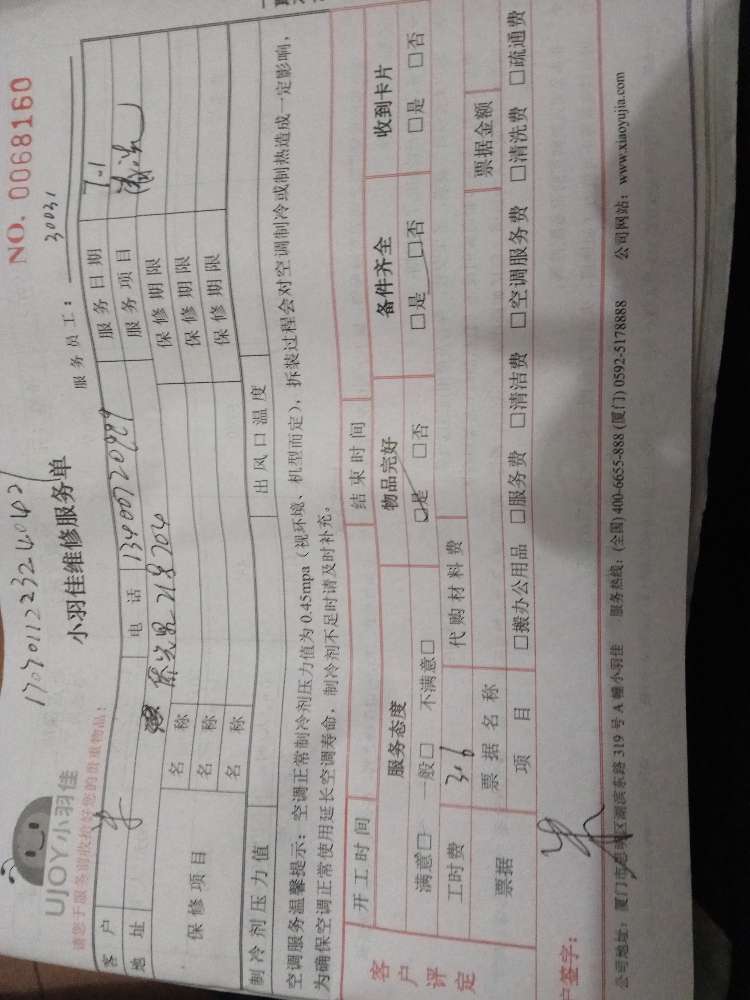 NO. 0068160
UJOY小羽佳
小羽佳维修服务单
30031
服务员工：
请您于服务前收拾好您的贵重物品：
客户 电话 13400720999 服务日期 7.1
地址 218 704 服务项目
保修项目 名称 保修期限
名称 保修期限
名称 保修期限
制冷剂压力值 出风口温度
空调服务温馨提示：空调正常制冷剂压力值为0.45mpa（视环境、机型而定），拆装过程会对空调制冷或制热造成一定影响，
为确保空调正常使用延长空调寿命，制冷剂不足时请及时补充。
开工时间 结束时间
客户评定 服务态度 物品完好 备件齐全 收到卡片
满意□ 一般□ 不满意□ □是 □否 □是 □否 □是 □否
工时费 306 代购材料费
票据 票据名称 票据金额
项目 □搬办公用品 □服务费 □清洁费 □空调服务费 □清洗费 □疏通费
户签字：
公司地址：厦门市思明区湖滨东路319号A幢小羽佳 服务热线：(全国) 400-6655-888 (厦门) 0592-5178888 公司网站：www.xiaoyujia.com